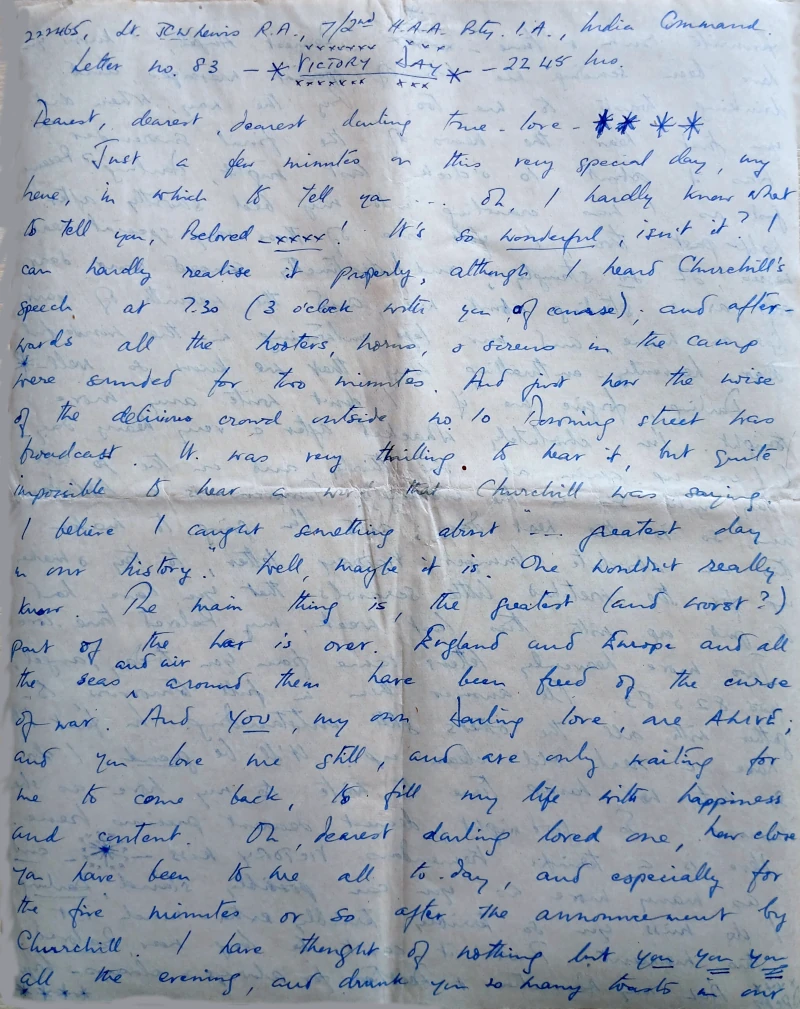 222465, Lt. JCW Lewis R.A., 7/2nd H.A.A. Bty. I.A., India Command.
xxxxxxx xxx
Letter no. 83 — * VICTORY DAY * — 2245 hrs.
xxxxxxx xxx
Dearest, dearest, dearest darling true-love - ****
Just a few minutes on this very special day, my
here, in which to tell you .... oh, I hardly know what
to tell you, Beloved - xxxx! It's so wonderful, isn't it? I
can hardly realise it properly, although I heard Churchill's
speech at 7.30 (3 o'clock with you, of course); and after-
wards all the hooters, horns, & sirens in the camp
were sounded for two minutes. And just now the noise
of the delirious crowd outside no. 10 Downing street was
broadcast. It was very thrilling to hear it, but quite
impossible to hear a word that Churchill was saying.
I believe I caught something about "... greatest day
in our history." Well, maybe it is. One wouldn't really
know. The main thing is, the greatest (and worst?)
part of the war is over. England and Europe and all
and air
the seas ^ around them have been freed of the curse
of war. And YOU, my own darling love, are ALIVE;
and you love me still, and are only waiting for
me to come back, to fill my life with happiness
and content. Oh, dearest darling loved one, how close
*
you have been to me all to-day, and especially for
the five minutes or so after the announcement by
Churchill. I have thought of nothing but you you you
all the evening, and drunk you so many toasts in our